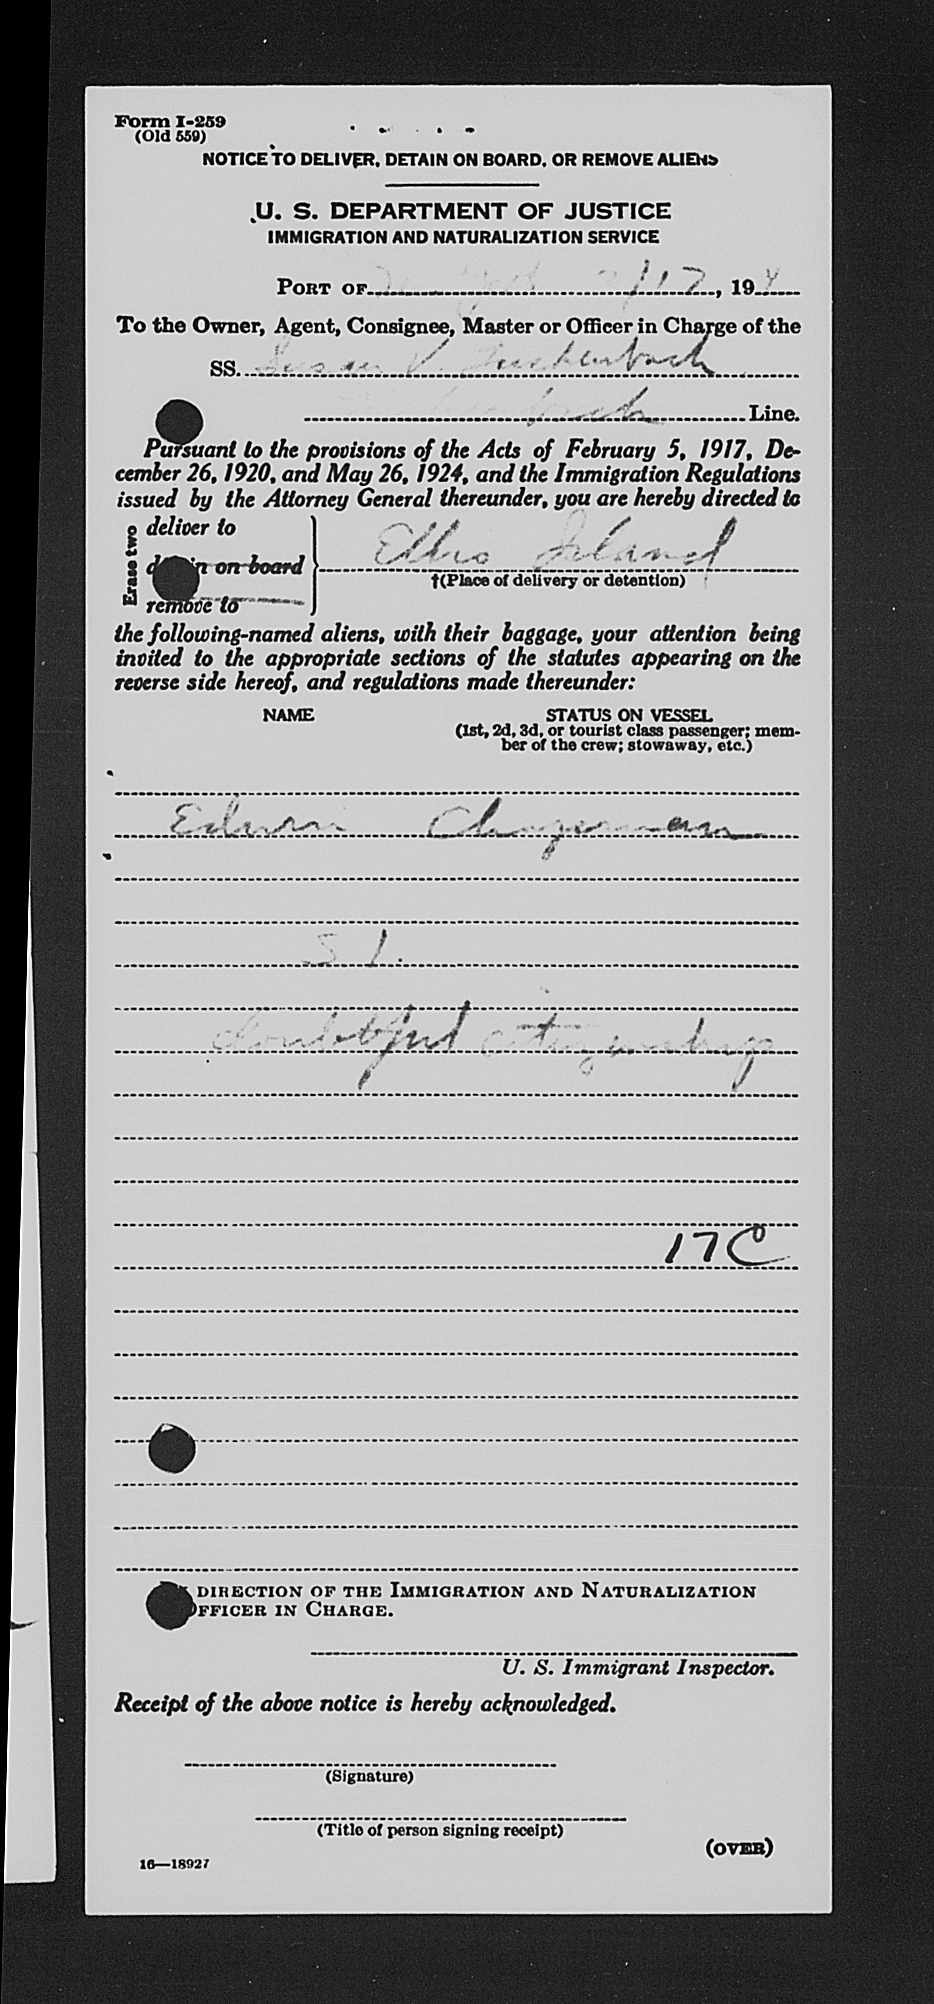 Form I-259
(Old 559)
NOTICE TO DELIVER, DETAIN ON BOARD, OR REMOVE ALIENS
U. S. DEPARTMENT OF JUSTICE
IMMIGRATION AND NATURALIZATION SERVICE
PORT OF /17, 194
To the Owner, Agent, Consignee, Master or Officer in Charge of the
SS. Susan V. Luckenbach
Line.
Pursuant to the provisions of the Acts of February 5, 1917, De-
cember 26, 1920, and May 26, 1924, and the Immigration Regulations
issued by the Attorney General thereunder, you are hereby directed to
Erase two
deliver to
on board
remove to
Ellis Island
†(Place of delivery or detention)
the following-named aliens, with their baggage, your attention being
invited to the appropriate sections of the statutes appearing on the
reverse side hereof, and regulations made thereunder:
NAME STATUS ON VESSEL
(1st, 2d, 3d, or tourist class passenger; mem-
ber of the crew; stowaway, etc.)
Edwin
S I.
doubtful citizenship
17C
DIRECTION OF THE IMMIGRATION AND NATURALIZATION
OFFICER IN CHARGE.
U. S. Immigrant Inspector.
Receipt of the above notice is hereby acknowledged.
(Signature)
(Title of person signing receipt)
(OVER)
16—18927